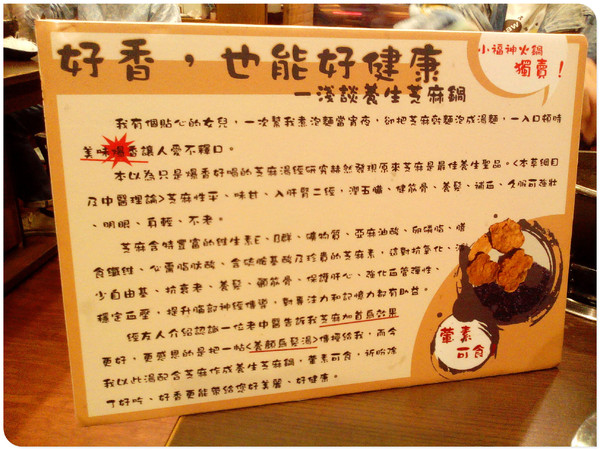 好香，也能好健康
小福神火鍋
獨賣！
—淺談養生芝麻鍋
我有個貼心的女兒，一次幫我煮泡麵當宵夜，卻把芝麻乾麵泡成湯麵，一入口頓時
美味爆香讓人愛不釋口。
本以為只是爆香好喝的芝麻湯經研究赫然發現原來芝麻是最佳養生聖品。<本草綱目
及中醫理論>芝麻性平、味甘、入肝腎二經，潤五臟、健筋骨、養髮、補血、久服可強壯
、明眼、身輕、不老。
芝麻含特豐富的維生素E、B群、礦物質、亞麻油酸、卵磷脂、膳
食纖維、心靈脂肽酸、含硫胺基酸及珍貴的芝麻素，這對抗氧化、減
少自由基、抗衰老、養髮、顧筋骨、保護肝心、強化血管彈性、
穩定血壓，提升腦部神經傳導，對專注力和記憶力都有助益。
經友人介紹認識一位老中醫告訴我芝麻加首烏效果
更好，更感恩的是把一帖<養顏烏髮湯>傳授給我，而今
我以此湯配合芝麻作成養生芝麻鍋，葷素可食，祈盼除
了好吃、好香更能帶給您好美麗、好健康。
葷素
可食